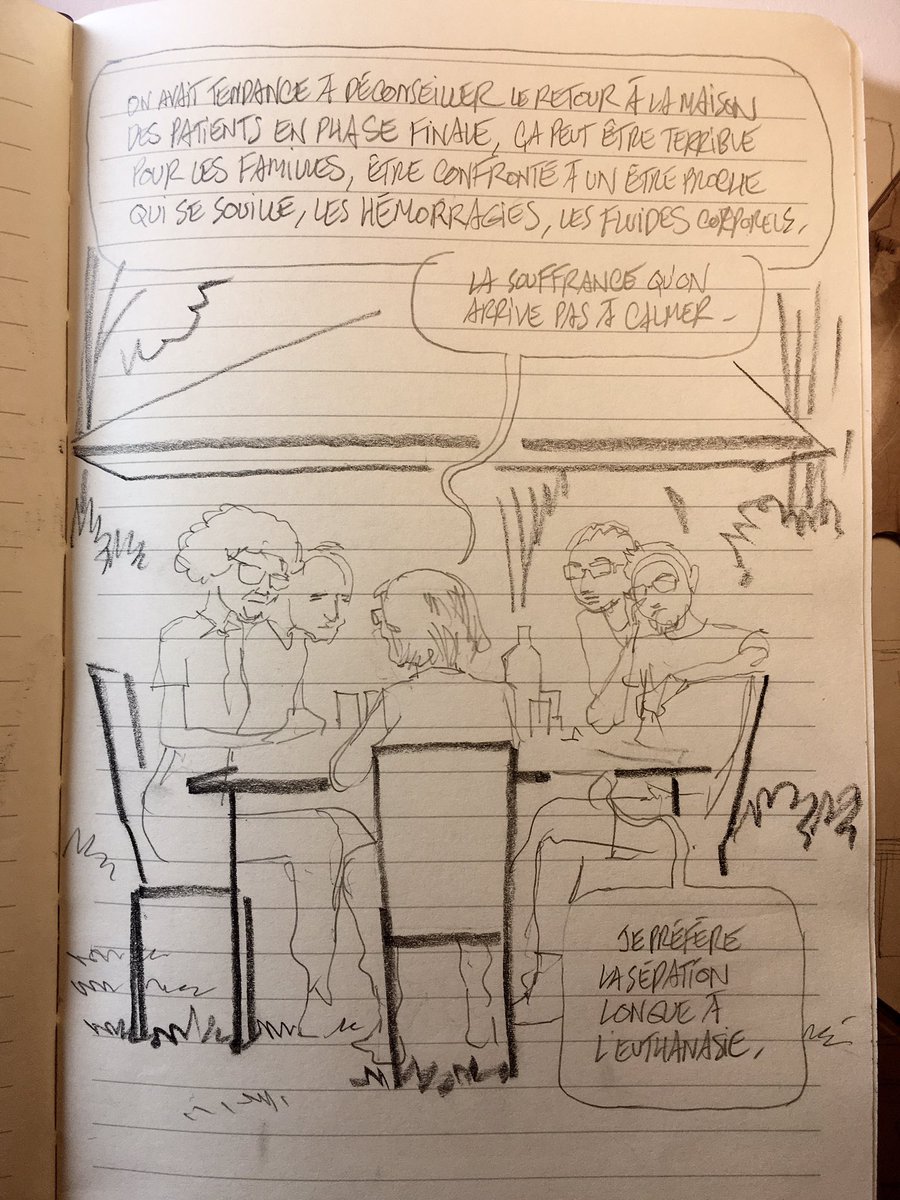 ON AVAIT TENDANCE À DÉCONSEILLER LE RETOUR À LA MAISON
DES PATIENTS EN PHASE FINALE, ÇA PEUT ÊTRE TERRIBLE
POUR LES FAMILLES, ÊTRE CONFRONTÉ À UN ÊTRE PROCHE
QUI SE SOUILLE, LES HÉMORRAGIES, LES FLUIDES CORPORELS.
LA SOUFFRANCE QU'ON
ARRIVE PAS À CALMER –
JE PRÉFÈRE
LA SÉDATION
LONGUE À
L'EUTHANASIE.